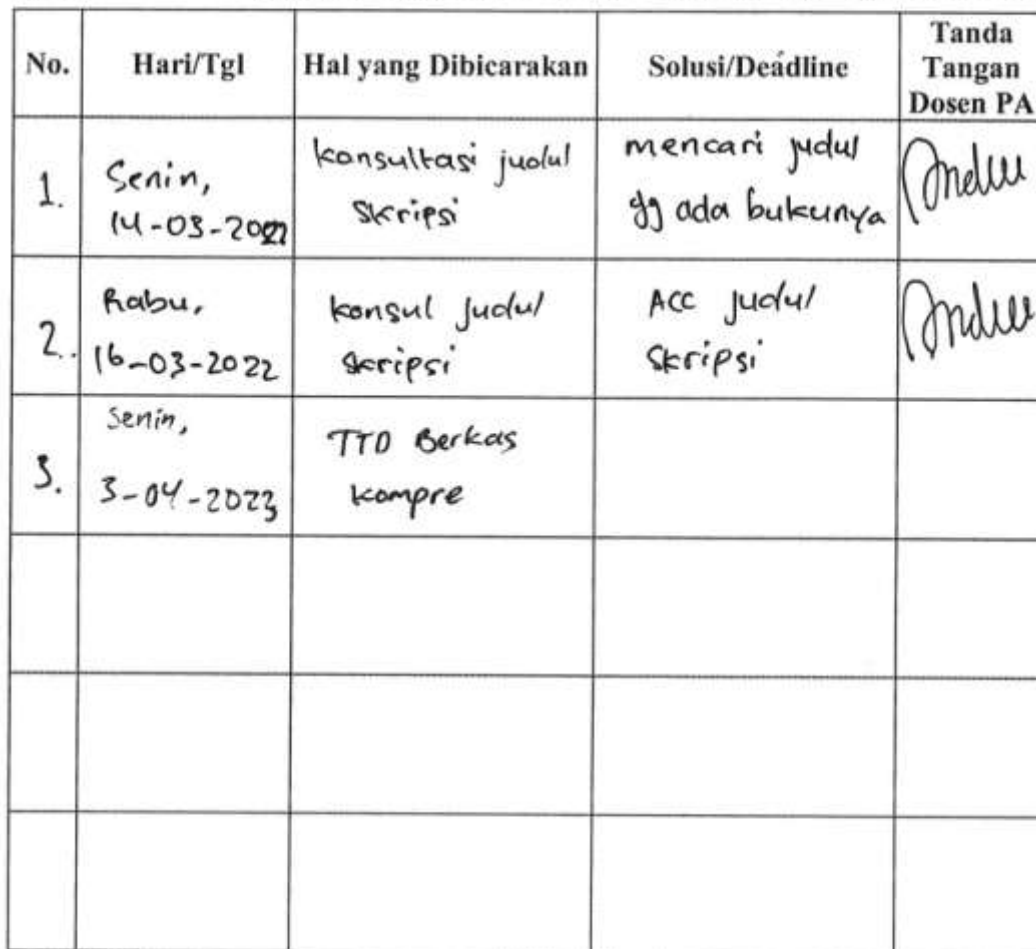 No. Hari/Tgl Hal yang Dibicarakan Solusi/Deadline Tanda
Tangan
Dosen PA
1. Senin,
14-03-2022
konsultasi judul
skripsi
mencari judul
yg ada bukunya
2. Rabu,
16-03-2022
konsul judul
skripsi
ACC judul
skripsi
3. Senin,
3-04-2023
TTD Berkas
kompre